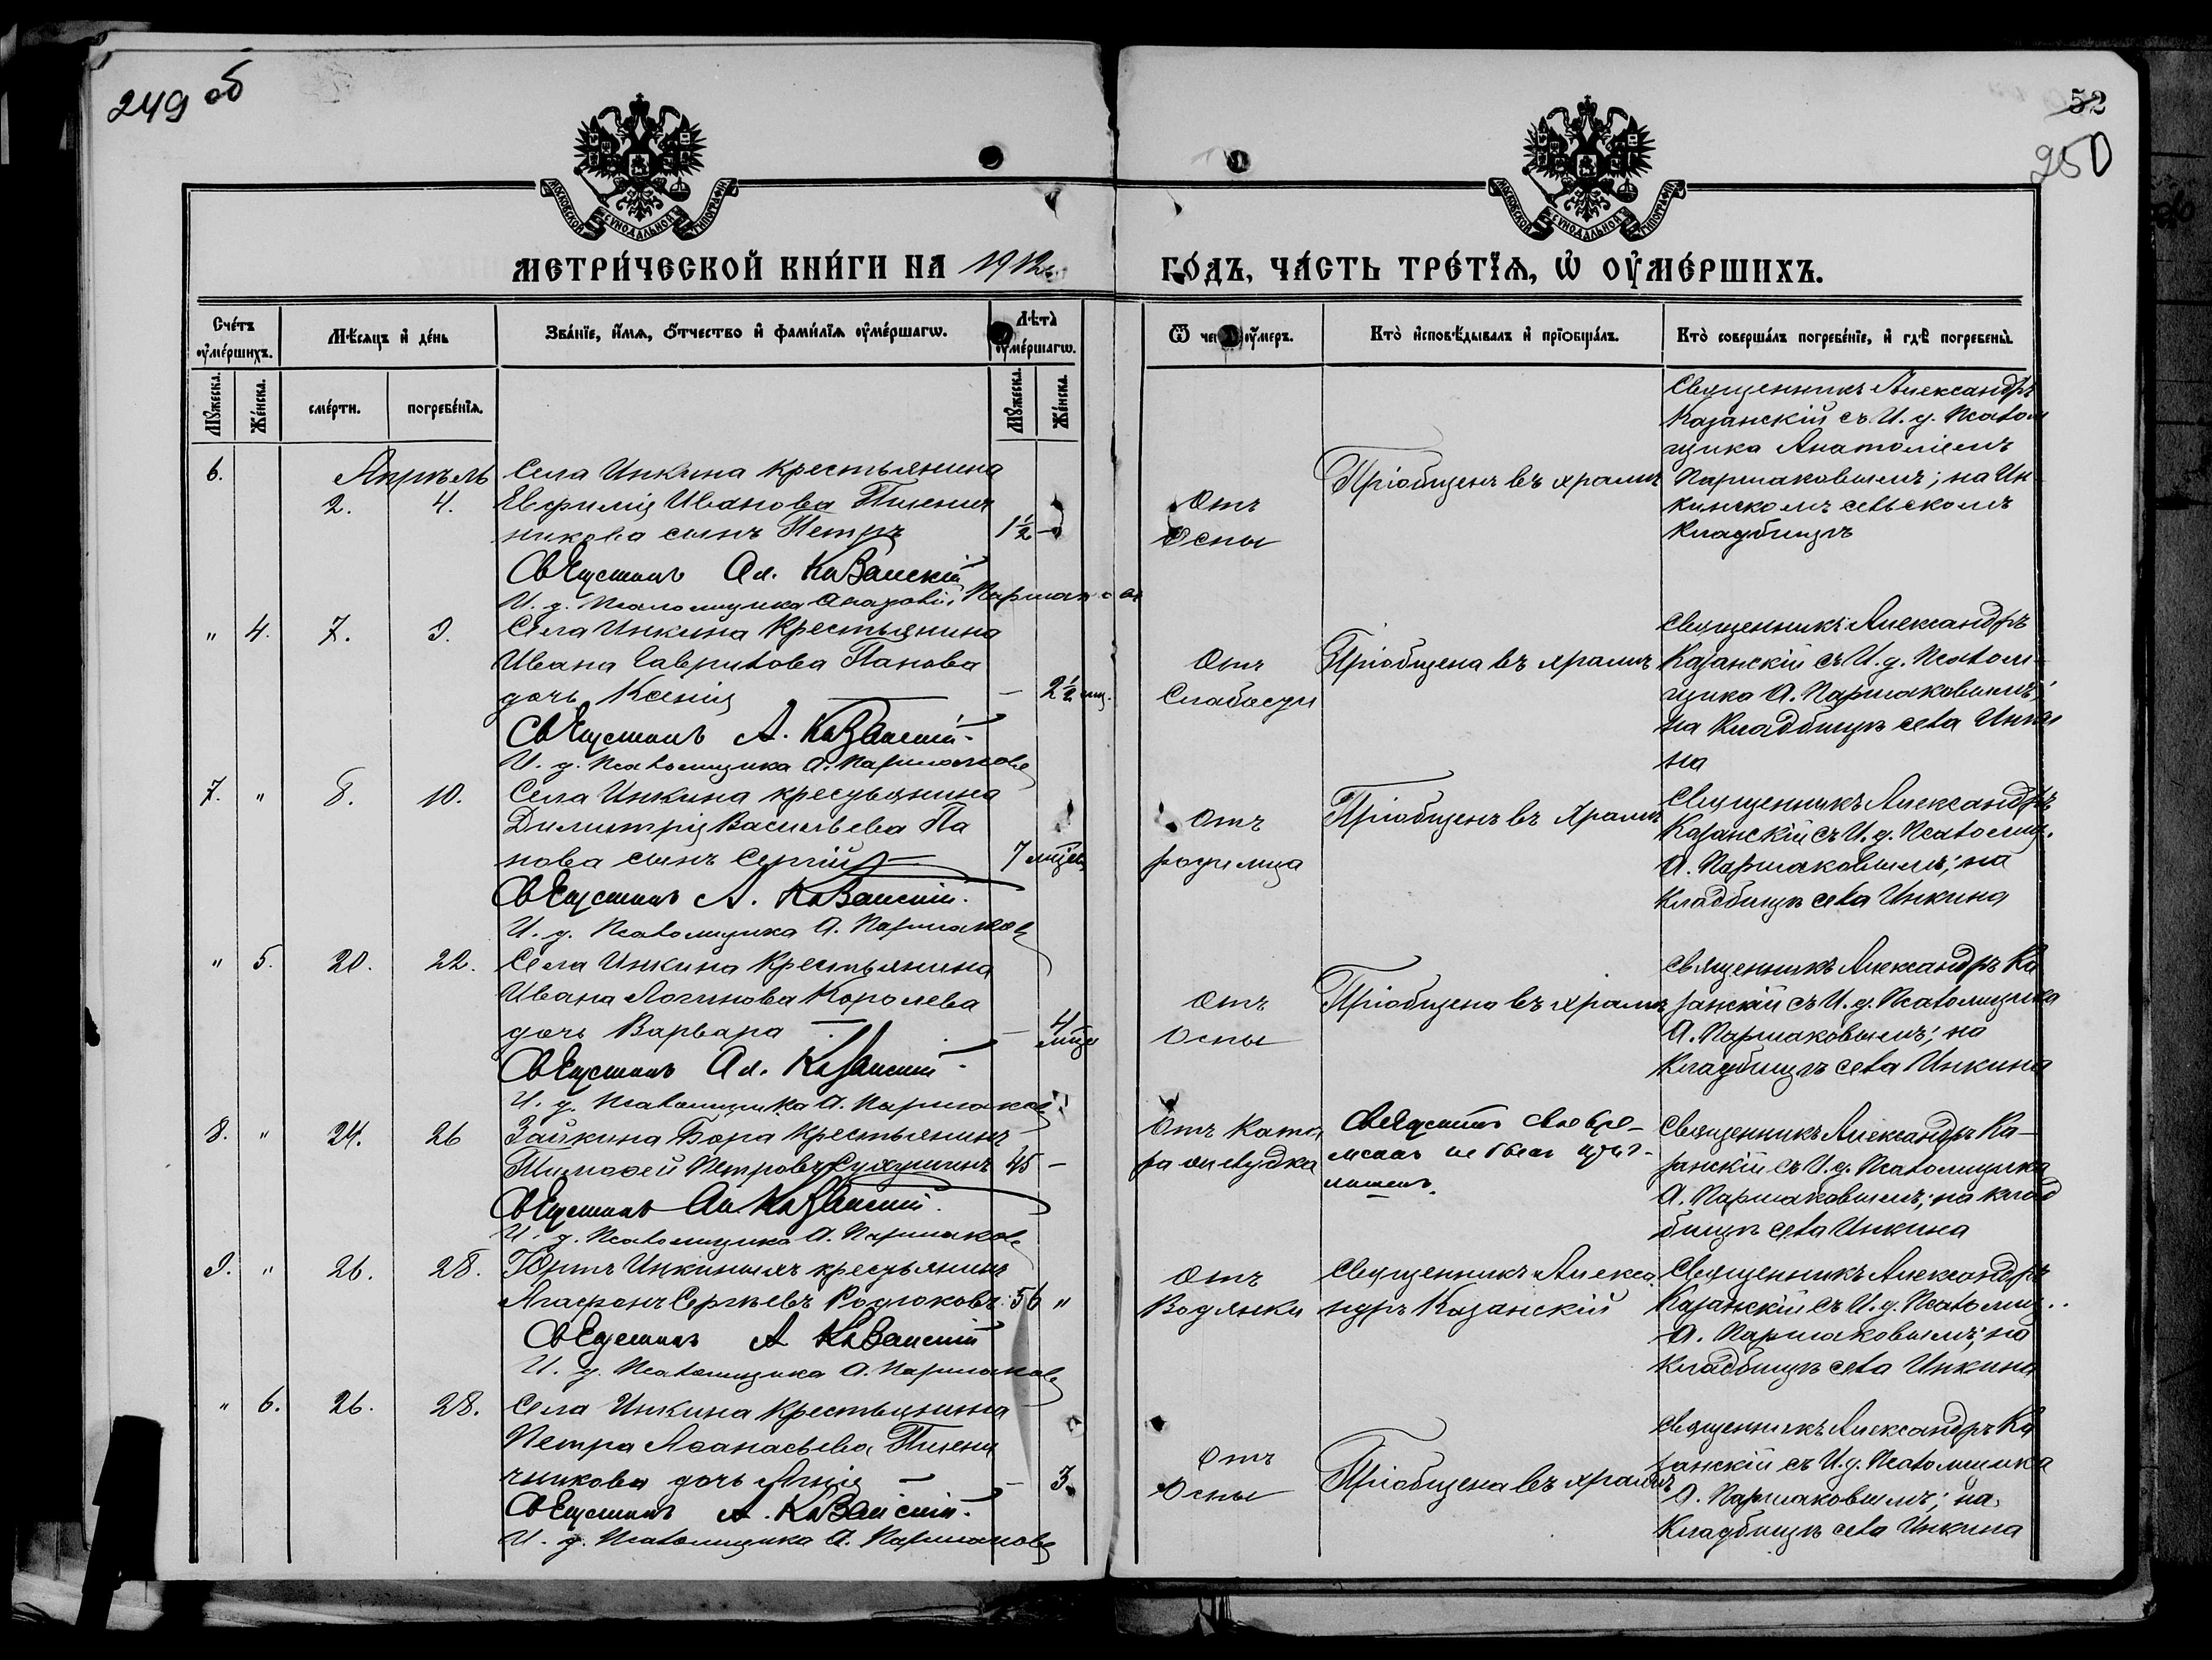 249 об
52
250
МОСКОВСКОЙ СѴНОДАЛЬНОЙ ТИПОГРАФІИ
МОСКОВСКОЙ СѴНОДАЛЬНОЙ ТИПОГРАФІИ
МЕТРИ́ЧЕСКОЙ КНИ́ГИ НА 1912 г.
ГО́ДЪ, ЧА́СТЬ ТРЕ́ТЇѦ, Ѡ҆ ОУ҆МЕ́РШИХЪ.
Сче́тъ оу҆ме́ршихъ.
Мѣ́сяцъ и҆ де́нь
Зва́нїе, и҆́мѧ, ѻ҆́тчество и҆ фами́лїѧ оу҆ме́ршагѡ.
Лѣ́та оу҆ме́ршагѡ.
Ѿ чегѡ̀ оу҆́меръ.
Кто̀ и҆сповѣ́дывалъ и҆ прїѡбща́лъ.
Кто̀ соверша́лъ погребе́нїе, и҆ гдѣ̀ погребены̀.
Мꙋ́жеска.
Же́нска.
сме́рти.
погребе́нїѧ.
Мꙋ́жеска.
Же́нска.
6.
Апрѣль
2. 4.
Села Инкина крестьянина
Евфимія Иванова Пшенич
никова сынъ Петръ
1½ –
Священникъ Ал. Казанскій
И. д. Псаломщика Анатолій Паршаков
Отъ
Оспы
Пріобщенъ въ храмѣ
Священникъ Александръ
Казанскій съ И. д. Псалом
щика Анатоліемъ
Паршаковымъ; на Ин
кинскомъ сельскомъ
кладбищѣ
" 4. 7. 9.
Села Инкина крестьянина
Ивана Гаврилова Панова
дочь Ксенія
– 2½ мц.
Священникъ А. Казанскій.
И. д. Псаломщика А. Паршаковъ
Отъ
Слабости
Пріобщена въ храмѣ
Священникъ Александръ
Казанскій съ И. д. Псалом-
щика А. Паршаковымъ;
на кладбищѣ села Инки
на
7. " 8. 10.
Села Инкина крестьянина
Димитрія Васильева Па
нова сынъ Сергій
7 мцев
Священникъ А. Казанскій.
И. д. Псаломщика А. Паршаковъ
Отъ
родимца
Пріобщенъ въ храмѣ
Священникъ Александръ
Казанскій съ И. д. Псаломщ.
А. Паршаковымъ; на
кладбищѣ села Инкина
" 5. 20. 22.
Села Инкина крестьянина
Ивана Логинова Королева
дочь Варвара
– 4
мцв
Священникъ Ал. Казанскій.
И. д. Псаломщика А. Паршаковъ
Отъ
Оспы
Пріобщена въ храмѣ
Священникъ Александръ Ка
занскій съ И. д. Псаломщика
А. Паршаковымъ; на
кладбищѣ села Инкина
8. " 24. 26
Зайкина Бора крестьянинъ
Тимофей Петровъ Сухушинъ 45 –
Священникъ Ал. Казанскій.
И. д. Псаломщика А. Паршаковъ
Отъ Ката
ра желудка
Священникъ своевре-
менно не былъ приг-
лашенъ.
Священникъ Александръ Ка-
занскій съ И. д. Псаломщика
А. Паршаковымъ; на клад
бищѣ села Инкина
9. " 26. 28.
Юртъ Инкиныхъ крестьянинъ
Агафонъ Сергѣевъ Родюковъ 56 "
Священникъ А Казанскій
И. д. Псаломщика А. Паршаковъ
Отъ
Водянки
Священникъ Алекса
ндръ Казанскій
Священникъ Александръ
Казанскій съ И. д. Псаломщ..
А. Паршаковымъ; на
кладбищѣ села Инкина
" 6. 26. 28.
Села Инкина крестьянина
Петра Аѳанасьева Пшени
чникова дочь Анія –
– 3.
Священникъ А. Казанскій.
И. д. Псаломщика А. Паршаковъ
Отъ
Оспы
Пріобщена въ храмѣ
Священникъ Александръ Ка
занскій съ И. д. Псаломщика
А. Паршаковымъ; на
кладбищѣ села Инкина